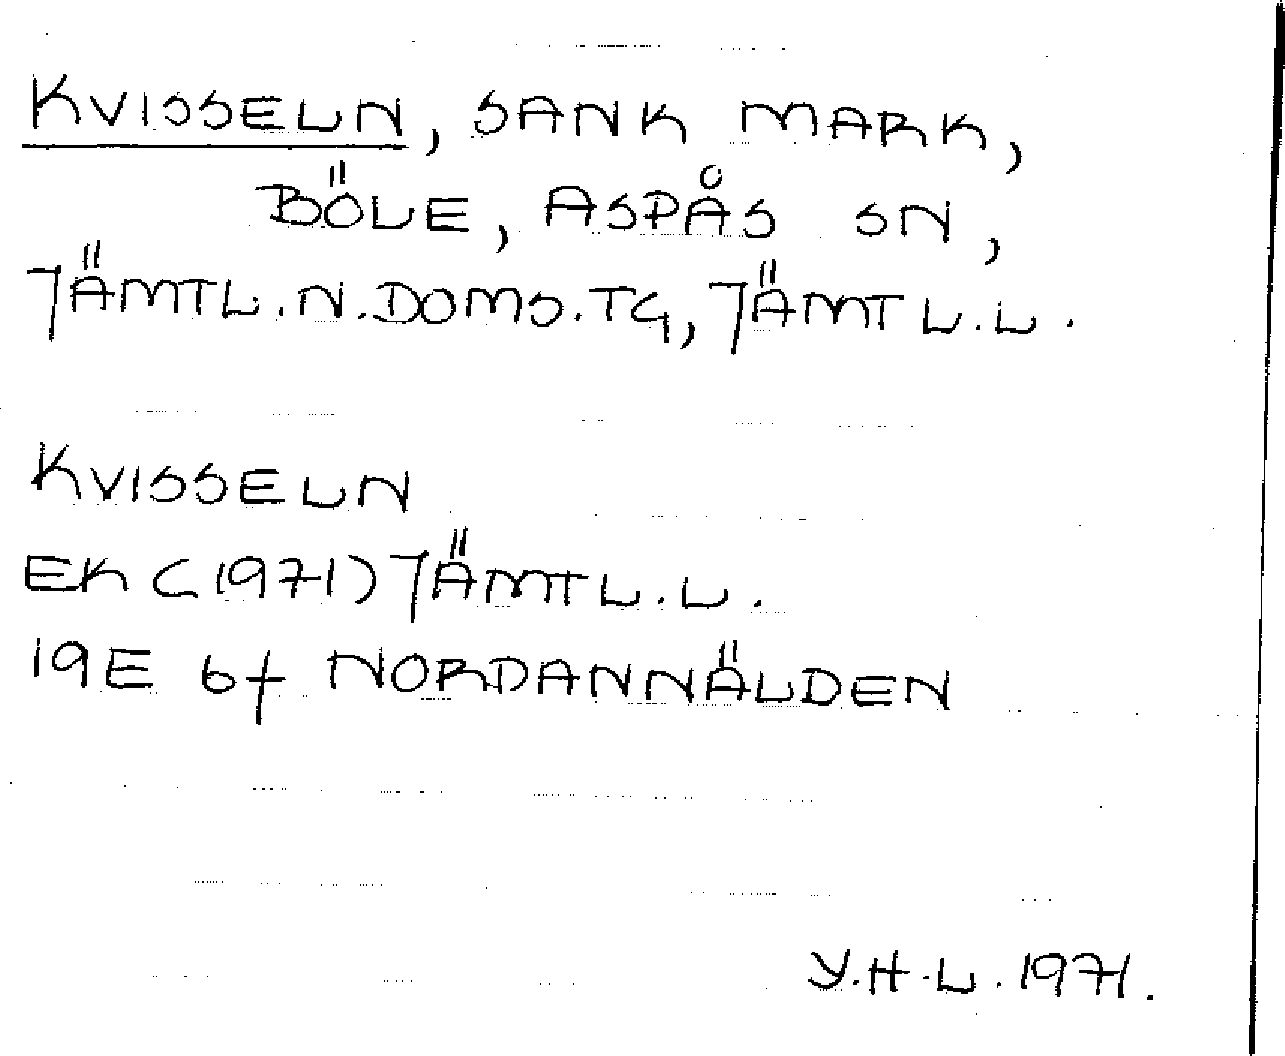 KVISSELN, SANK MARK,
BÖLE, ASPÅS SN,
JÄMTL.N.DOMS.TG, JÄMTL.L.
KVISSELN
EK (1971) JÄMTL.L.
19E 6f NORDANNÄLDEN
Y.H.L. 1971.